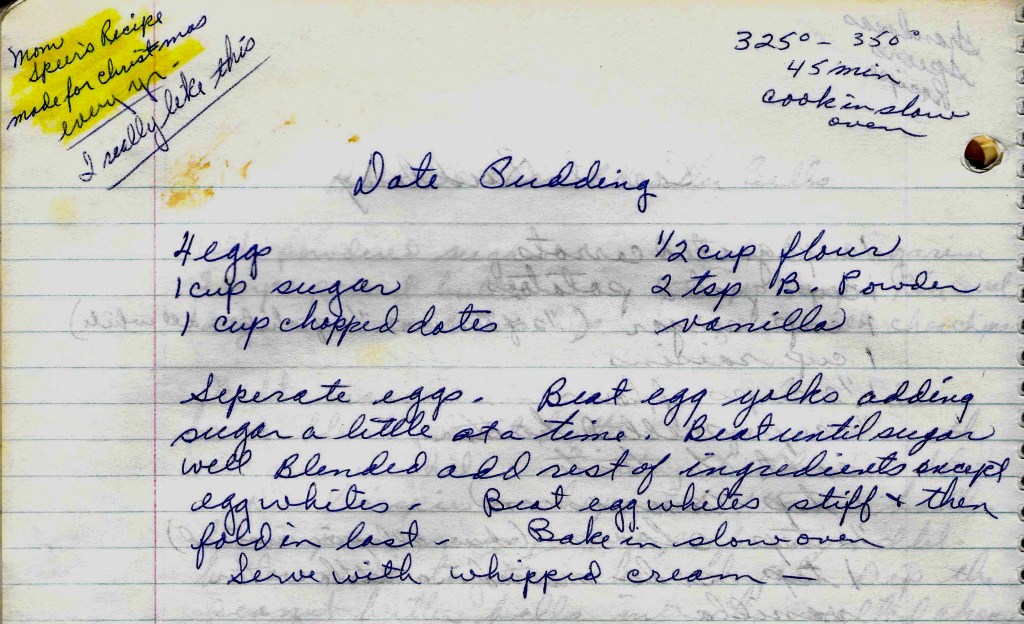 Mom
Speer's Recipe
made for christmas
every yr.
I really like this
325° - 350°
45 min
cook in slow
oven
Date Pudding
4 eggs
1/2 cup flour
1 cup sugar
2 tsp B. Powder
1 cup chopped dates
vanilla
Seperate eggs. Beat egg yolks adding
sugar a little at a time. Beat until sugar
well Blended add rest of ingredients except
egg whites. Beat egg whites stiff & then
fold in last - Bake in slow oven
Serve with whipped cream —